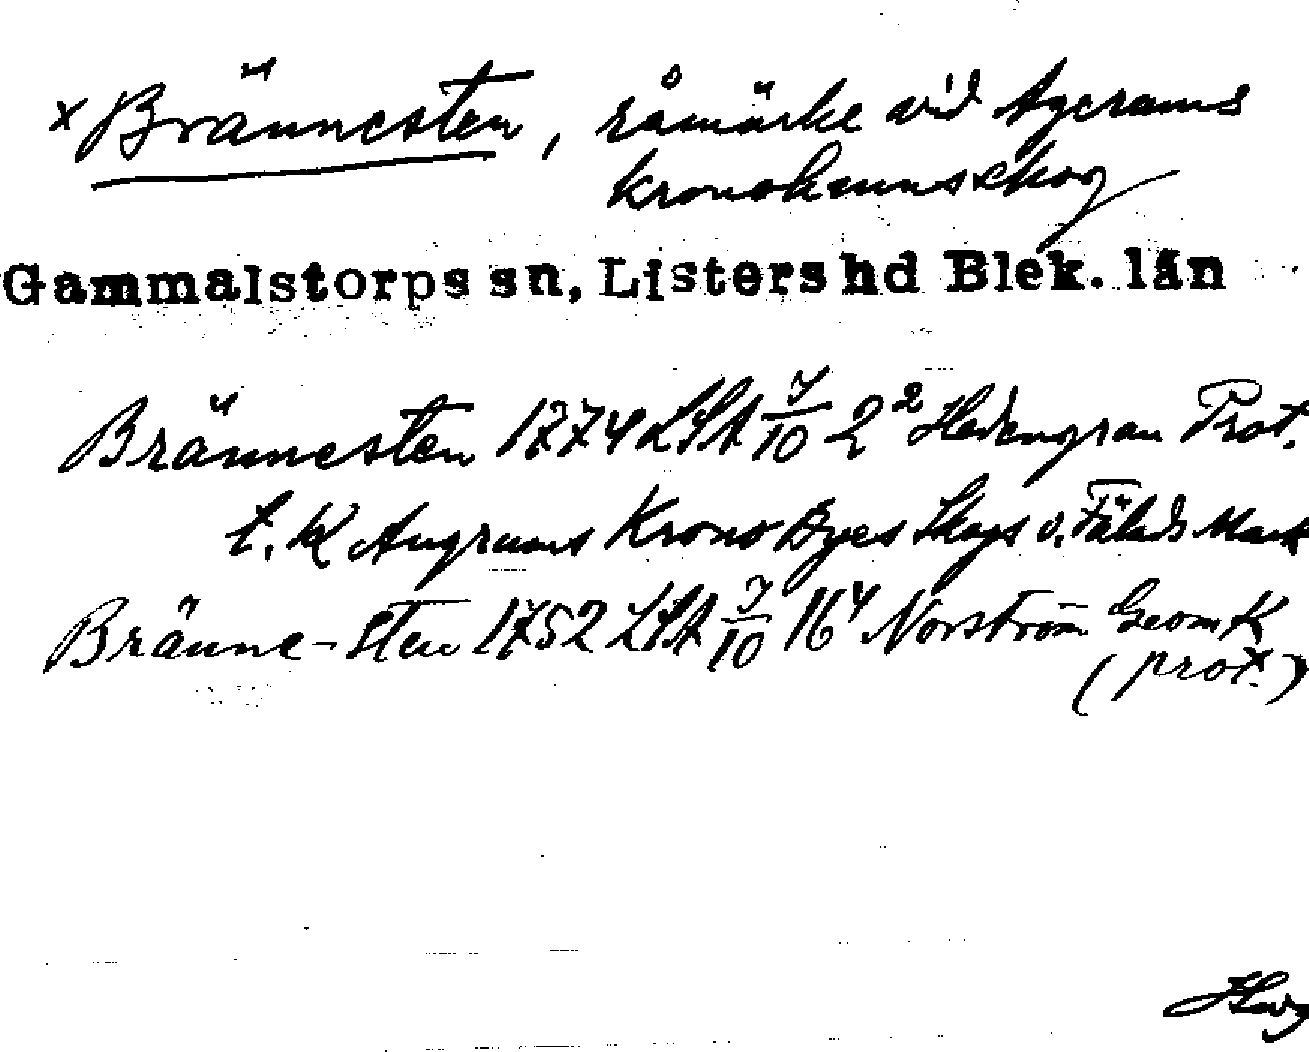 x Brännesten, råmärke vid Agerums
kronohemmskog
Gammalstorps sn, Listers hd Blek. län
Brännesten 1774 LSA 7/10 2² Hedengran Prot.
t. K Augrums Krono Byes Skogs o. Fälads Mark
Bränne-Sten 1752 LSA 7/10 16⁴ Norström Geom K
(prot.)